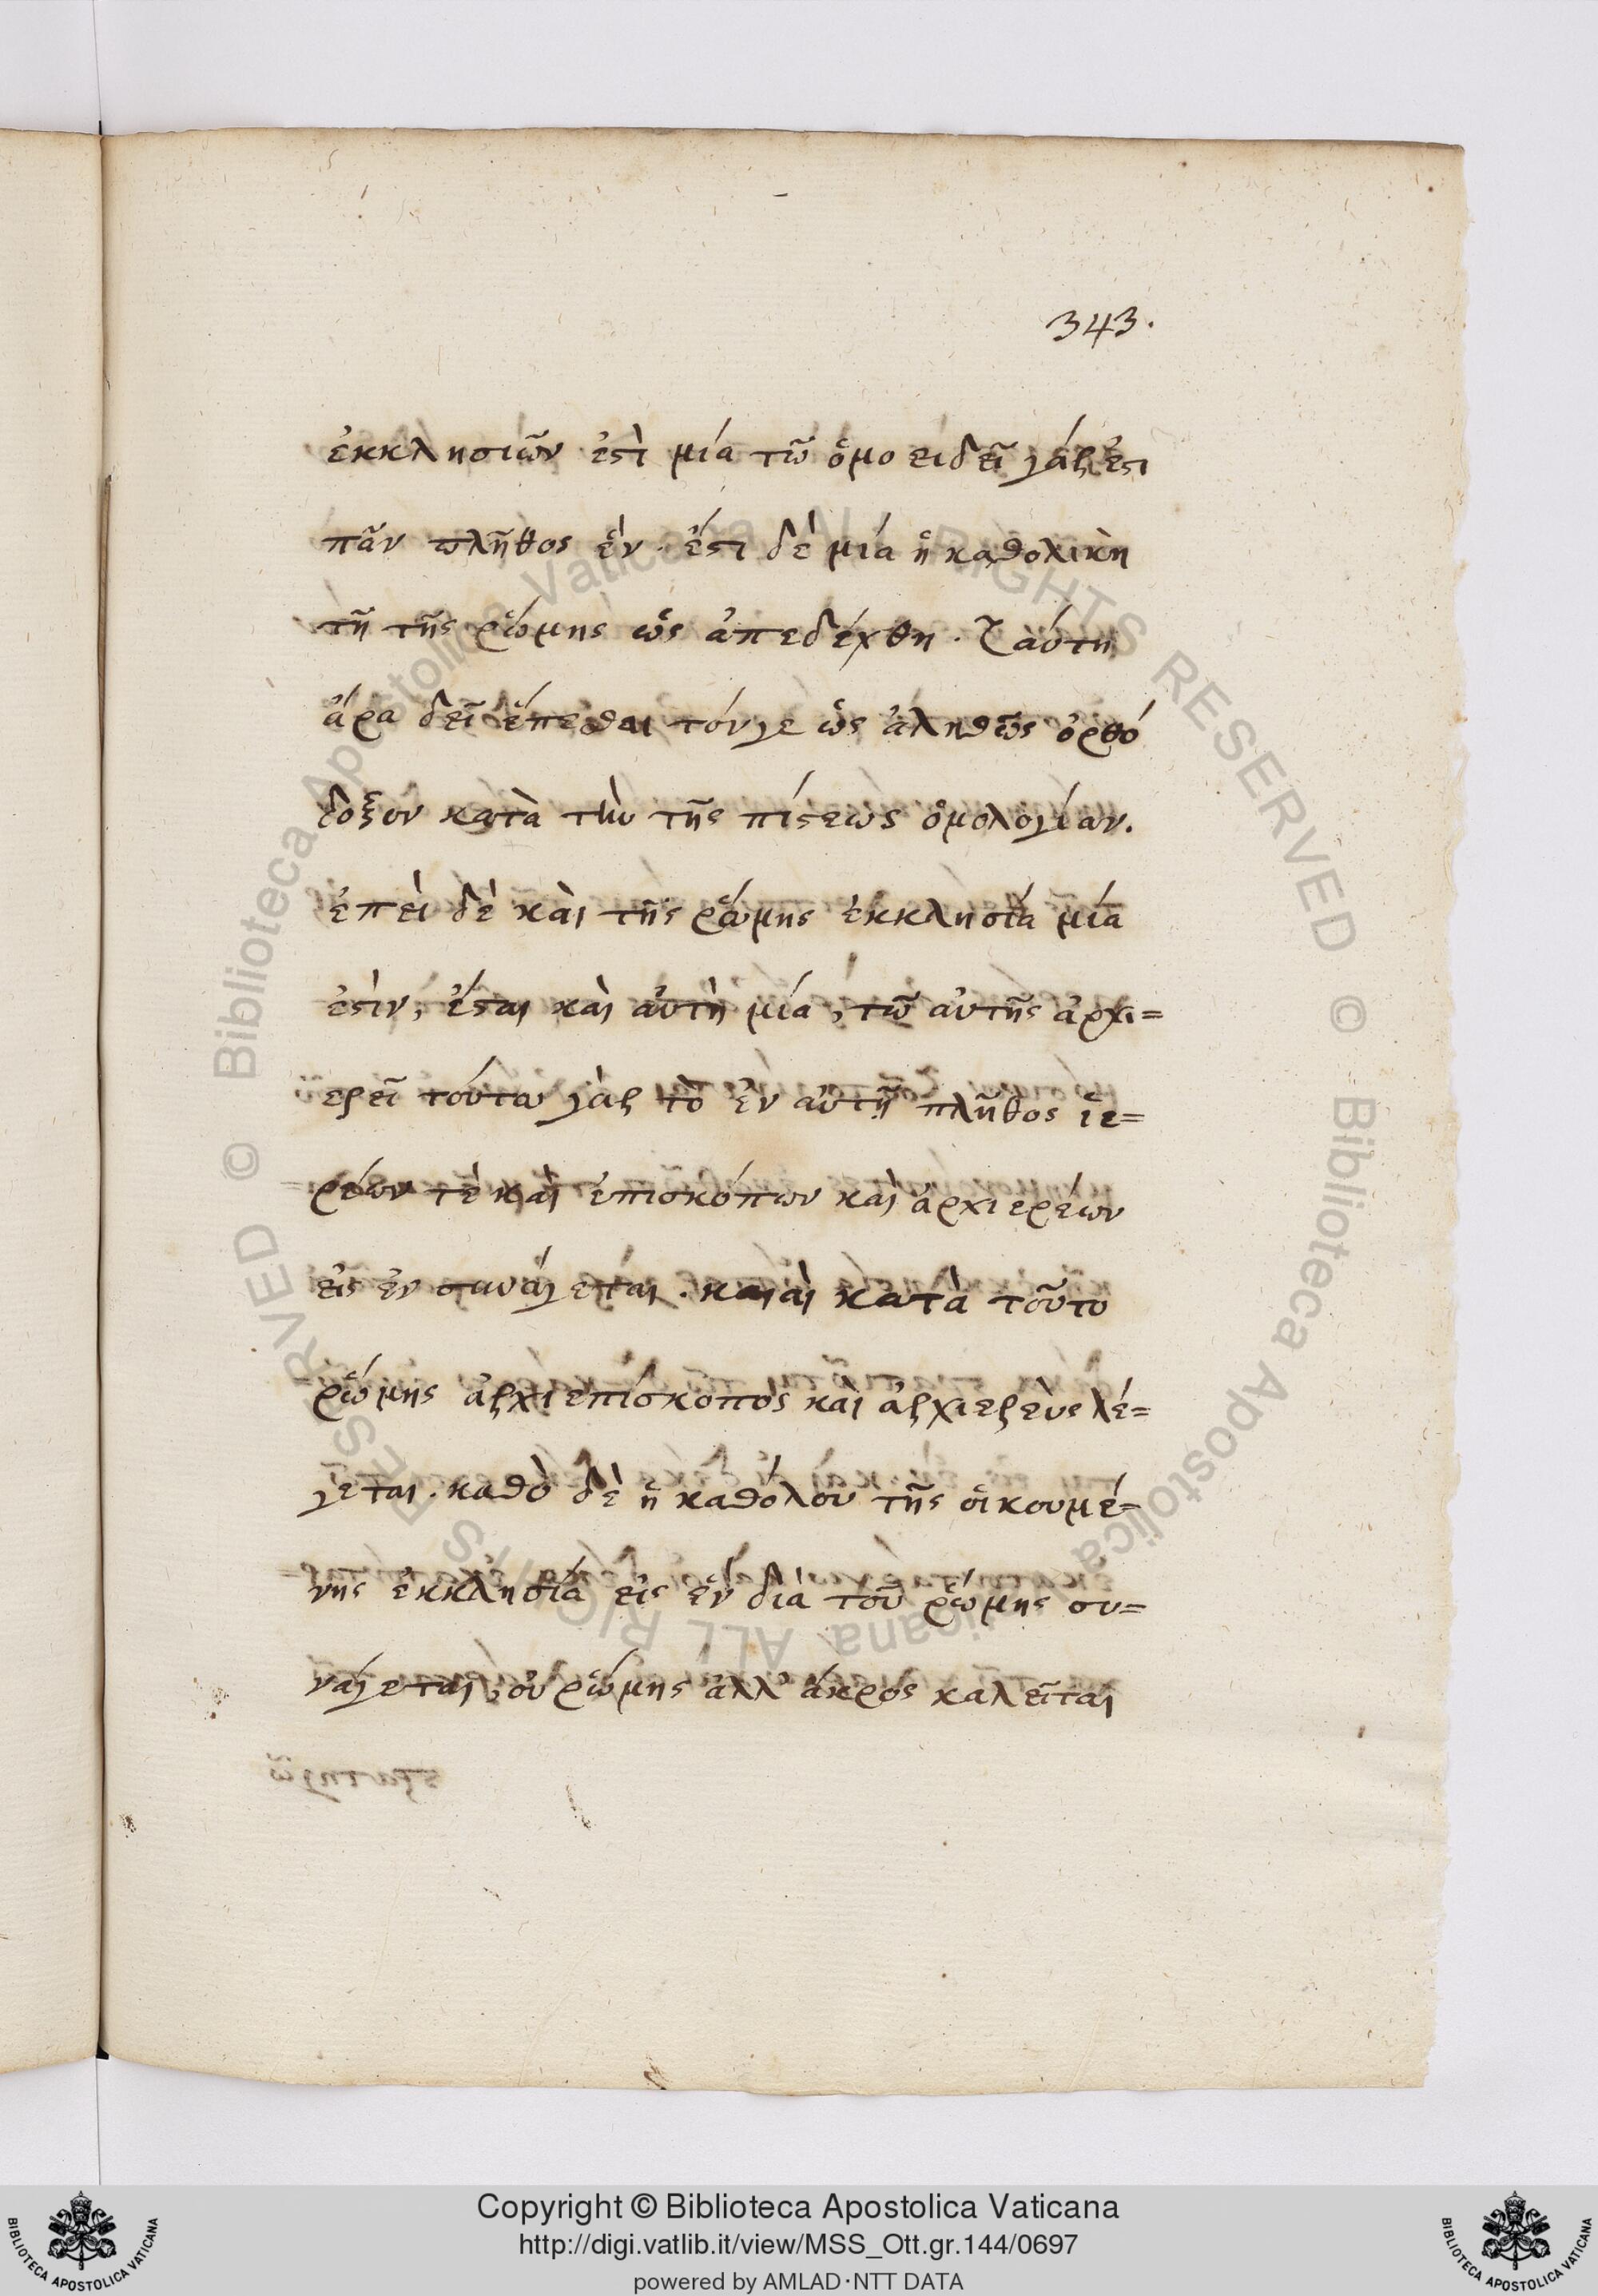 343.
ἐκκλησιῶν ἐστὶ μία τῷ ὁμοειδεῖ γάρ ἐστι
πᾶν πλῆθος ἕν. ἔστι δὲ μία ἡ καθολικὴ
τῇ τῆς ῥώμης ὡς ἀπεδέχθη. ταύτῃ
ἄρα δεῖ ἕπεσθαι τόνγε ὡς ἀληθῶς ὀρθό
δοξον κατὰ τὴν τῆς πίστεως ὁμολογίαν.
ἐπεὶ δὲ καὶ τῆς ῥώμης ἐκκλησία μία
ἐστὶν, ἔσται καὶ αὐτὴ μία, τῷ αὐτῆς ἀρχι=
ερεῖ τούτω γὰρ τὸ ἐν αὐτῇ πλῆθος ἱε=
ρέων τὲ καὶ ἐπισκόπων καὶ ἀρχιερέων
εἰς ἓν συνάγεται. κατὰ τοῦτο
ῥώμης ἀρχιεπίσκοπος καὶ ἀρχιερεὺς λέ=
γεται. καθὸ δὲ ἡ καθόλου τῆς οἰκουμέ=
νης ἐκκλησία εἰς ἓν διὰ τοῦ ῥώμης συ=
νάγεται, οὐ ῥώμης ἀλλ' ἄκρος καλεῖται
© Biblioteca Apostolica Vaticana ALL RIGHTS RESERVED © Biblioteca Apostolica Vaticana ALL RIGHTS RESERVED
Copyright © Biblioteca Apostolica Vaticana
http://digi.vatlib.it/view/MSS_Ott.gr.144/0697
powered by AMLAD·NTT DATA
BIBLIOTECA APOSTOLICA VATICANA
BIBLIOTECA APOSTOLICA VATICANA